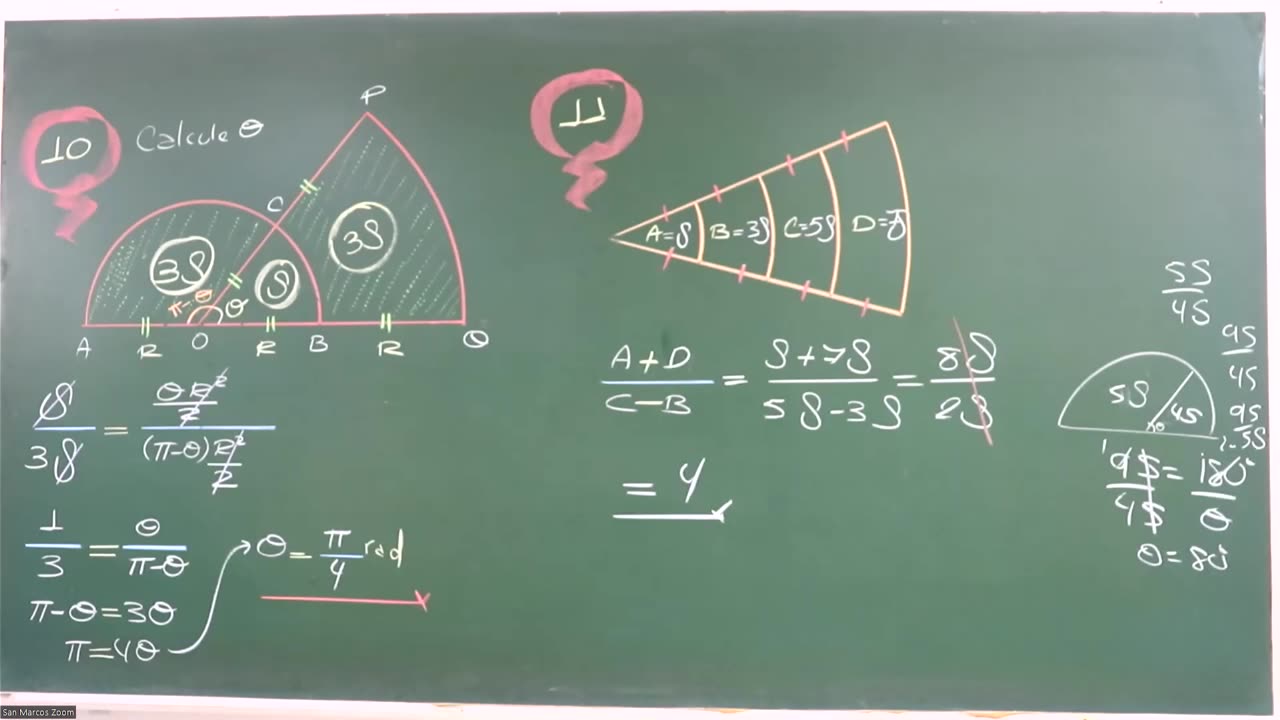 10 Calcule θ
P
C
3S
3S
S
π-θ θ
A R O R B R Q
S/3S = (θR²/2)/((π-θ)R²/2)
1/3 = θ/(π-θ)
π-θ=3θ
π=4θ
θ = π/4 rad
11
A=S B=3S C=5S D=7S
(A+D)/(C-B) = (S+7S)/(5S-3S) = 8S/2S
= 4
5S/4S
9S/4S
9S
-5S
5S 4S
9S/4S = 180°/θ
θ=80°
San Marcos Zoom